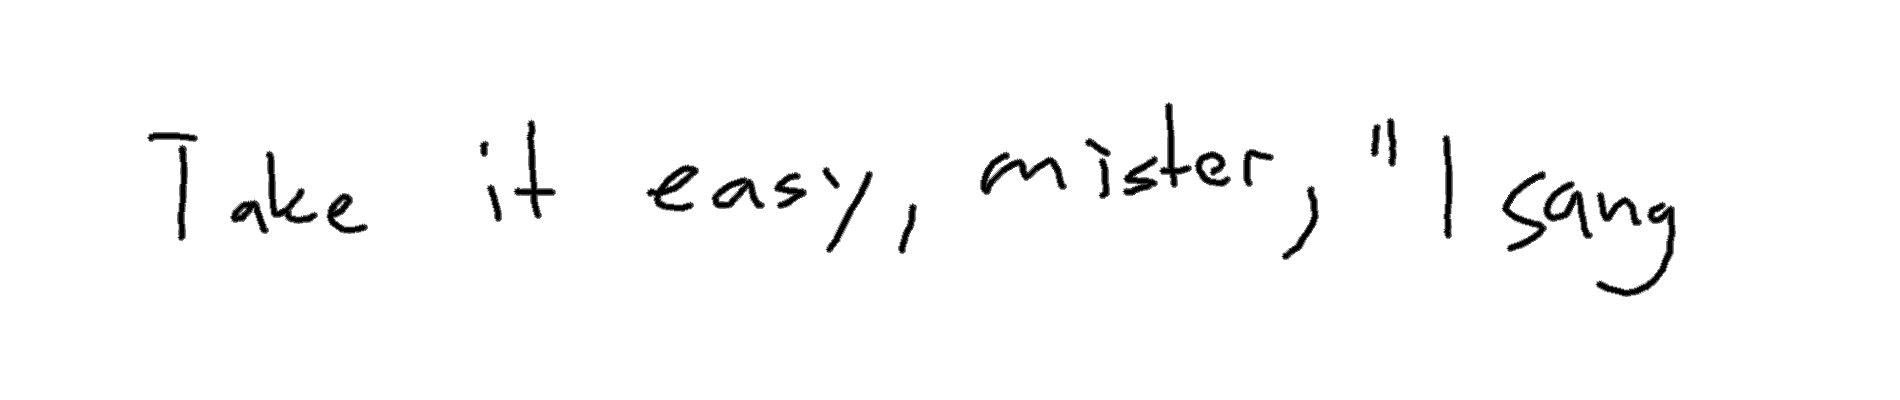 Take it easy, mister," I sang